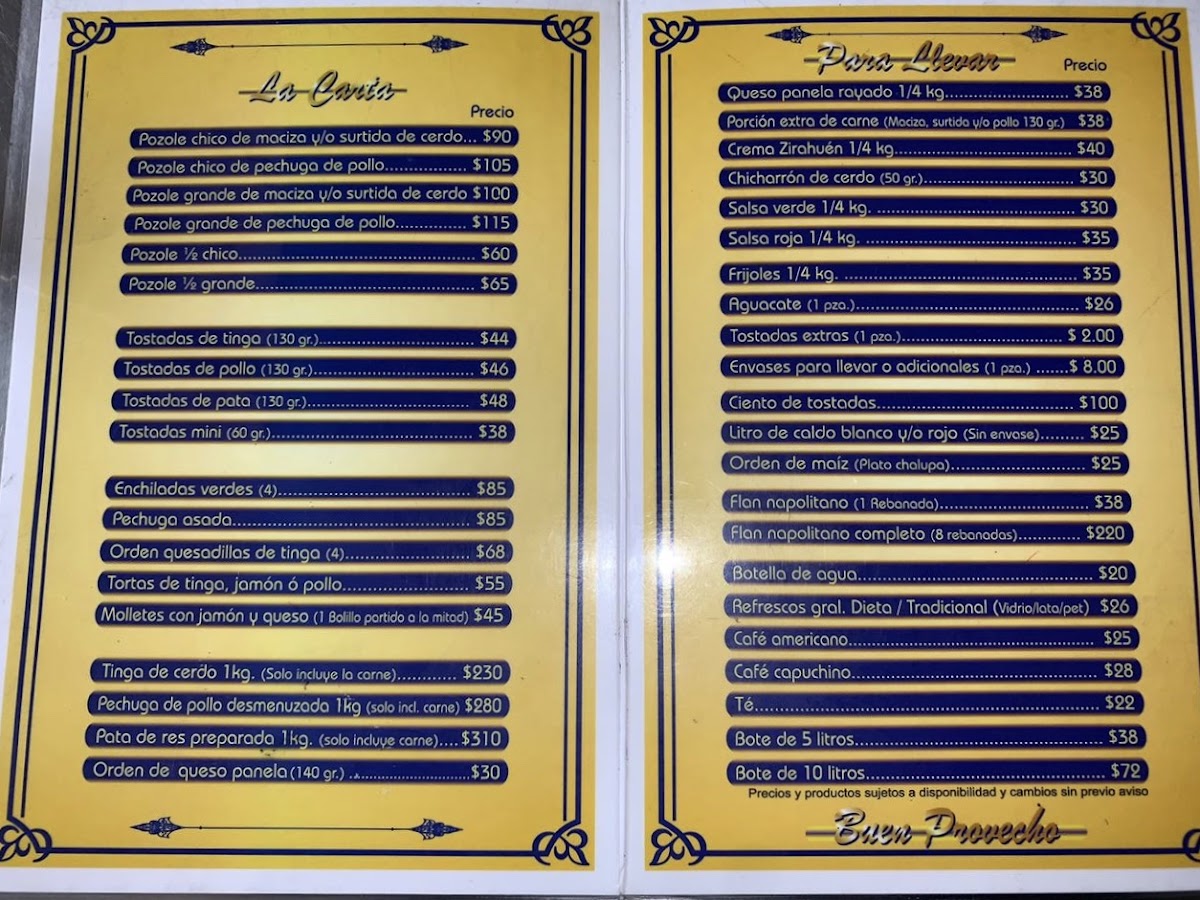 La Carta
Precio
Pozole chico de maciza y/o surtida de cerdo... $90
Pozole chico de pechuga de pollo................ $105
Pozole grande de maciza y/o surtida de cerdo $100
Pozole grande de pechuga de pollo............. $115
Pozole ½ chico.................................................. $60
Pozole ½ grande............................................... $65
Tostadas de tinga (130 gr.)................................. $44
Tostadas de pollo (130 gr.).................................. $46
Tostadas de pata (130 gr.)................................... $48
Tostadas mini (60 gr.).......................................... $38
Enchiladas verdes (4)......................................... $85
Pechuga asada.................................................. $85
Orden quesadillas de tinga (4).......................... $68
Tortas de tinga, jamón ó pollo........................... $55
Molletes con jamón y queso (1 Bolillo partido a la mitad) $45
Tinga de cerdo 1kg. (Solo incluye la carne)............ $230
Pechuga de pollo desmenuzada 1kg (solo incl. carne) $280
Pata de res preparada 1kg. (solo incluye carne).... $310
Orden de queso panela (140 gr.) .............................. $30
Para Llevar
Precio
Queso panela rayado 1/4 kg......................... $38
Porción extra de carne (Maciza, surtida y/o pollo 130 gr.) $38
Crema Zirahuén 1/4 kg................................... $40
Chicharrón de cerdo (50 gr.)............................... $30
Salsa verde 1/4 kg. ......................................... $30
Salsa roja 1/4 kg. ........................................... $35
Frijoles 1/4 kg. ................................................. $35
Aguacate (1 pza.).............................................. $26
Tostadas extras (1 pza.)................................... $ 2.00
Envases para llevar o adicionales (1 pza.) .......$ 8.00
Ciento de tostadas......................................... $100
Litro de caldo blanco y/o rojo (Sin envase)......... $25
Orden de maíz (Plato chalupa)........................... $25
Flan napolitano (1 Rebanada)............................... $38
Flan napolitano completo (8 rebanadas).............. $220
Botella de agua................................................ $20
Refrescos gral. Dieta / Tradicional (Vidrio/lata/pet) $26
Café americano................................................... $25
Café capuchino................................................... $28
Té........................................................................ $22
Bote de 5 litros.................................................... $38
Bote de 10 litros.................................................. $72
Precios y productos sujetos a disponibilidad y cambios sin previo aviso
Buen Provecho